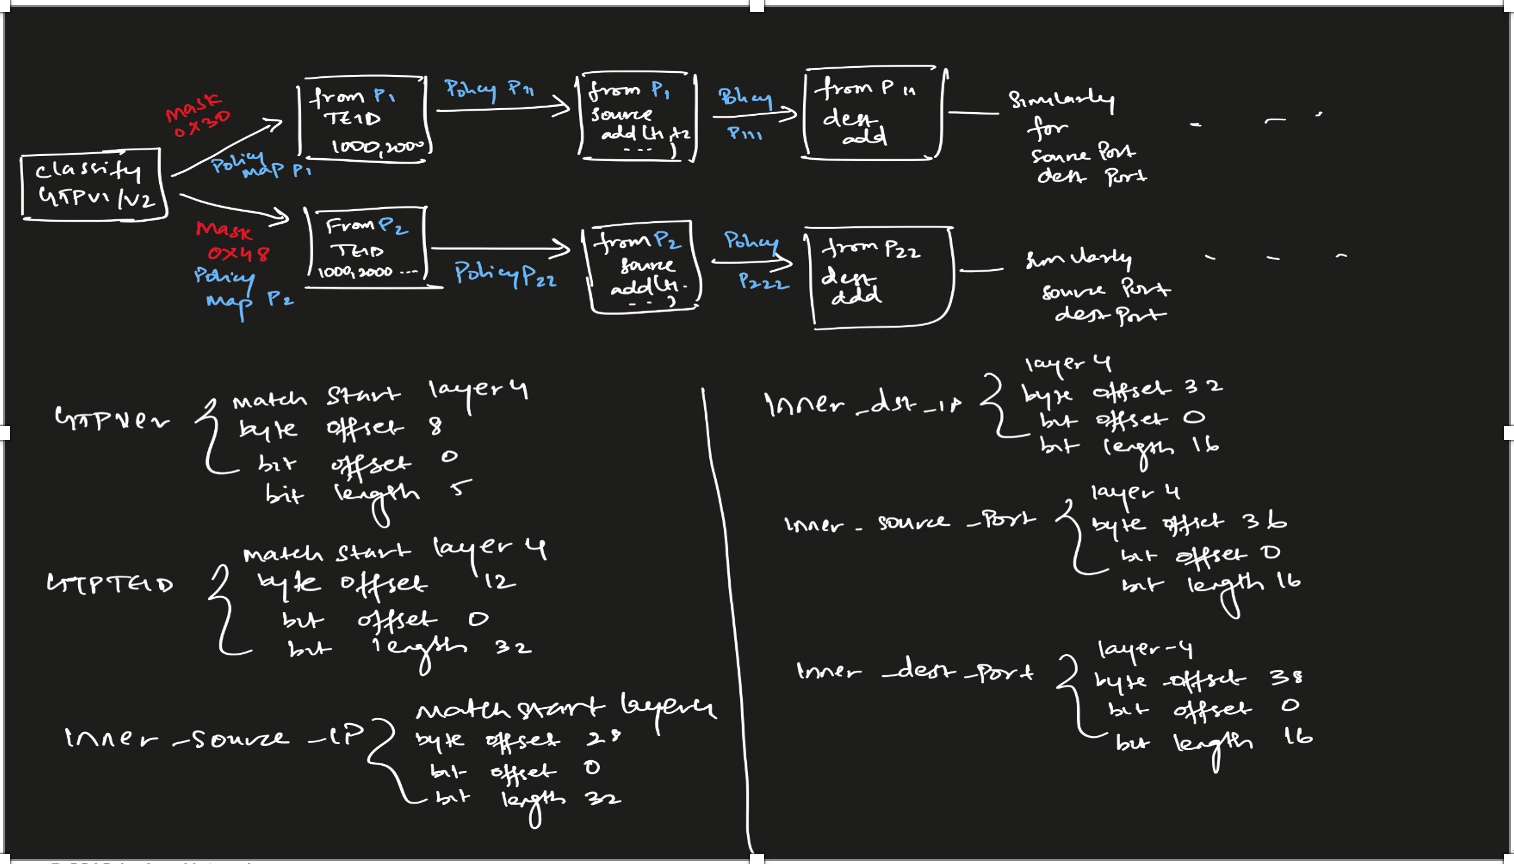 classify
GTPV1/V2
Mask
0x30
Policy
map P1
from P1
TEID
1000,2000
Policy P11
from P1
source
add(h1,h2
...)
Policy
P111
from P11
dest
add
Similarly
for
source Port
dest Port
- - -
Mask
0x48
Policy
map P2
From P2
TEID
1000,2000...
Policy P22
from P2
source
add(h.
...)
Policy
P222
from P22
dest
add
Similarly
source Port
dest Port
- - -
GTPVer
match start layer 4
byte offset 8
bit offset 0
bit length 5
GTPTEID
match start layer 4
byte offset 12
bit offset 0
bit length 32
Inner_source_IP
match start layer 4
byte offset 28
bit offset 0
bit length 32
Inner_dst_IP
layer 4
byte offset 32
bit offset 0
bit length 16
Inner_source_Port
layer 4
byte offset 36
bit offset 0
bit length 16
Inner_dest_Port
layer-4
byte offset 38
bit offset 0
bit length 16